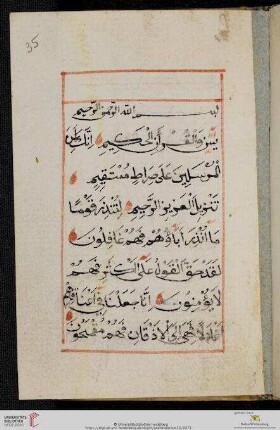 35
بسم الله الرحمن الرحيم
يس والقرآن الحكيم انك لمن
المرسلين على صراط مستقيم
تنزيل العزيز الرحيم لتنذر قوما
ما انذر اباؤهم فهم غافلون
لقد حق القول على اكثرهم فهم
لا يؤمنون انا جعلنا في اعناقهم
اغلالا فهي الى الاذقان فهم مقمحون
© Universitätsbibliothek Heidelberg